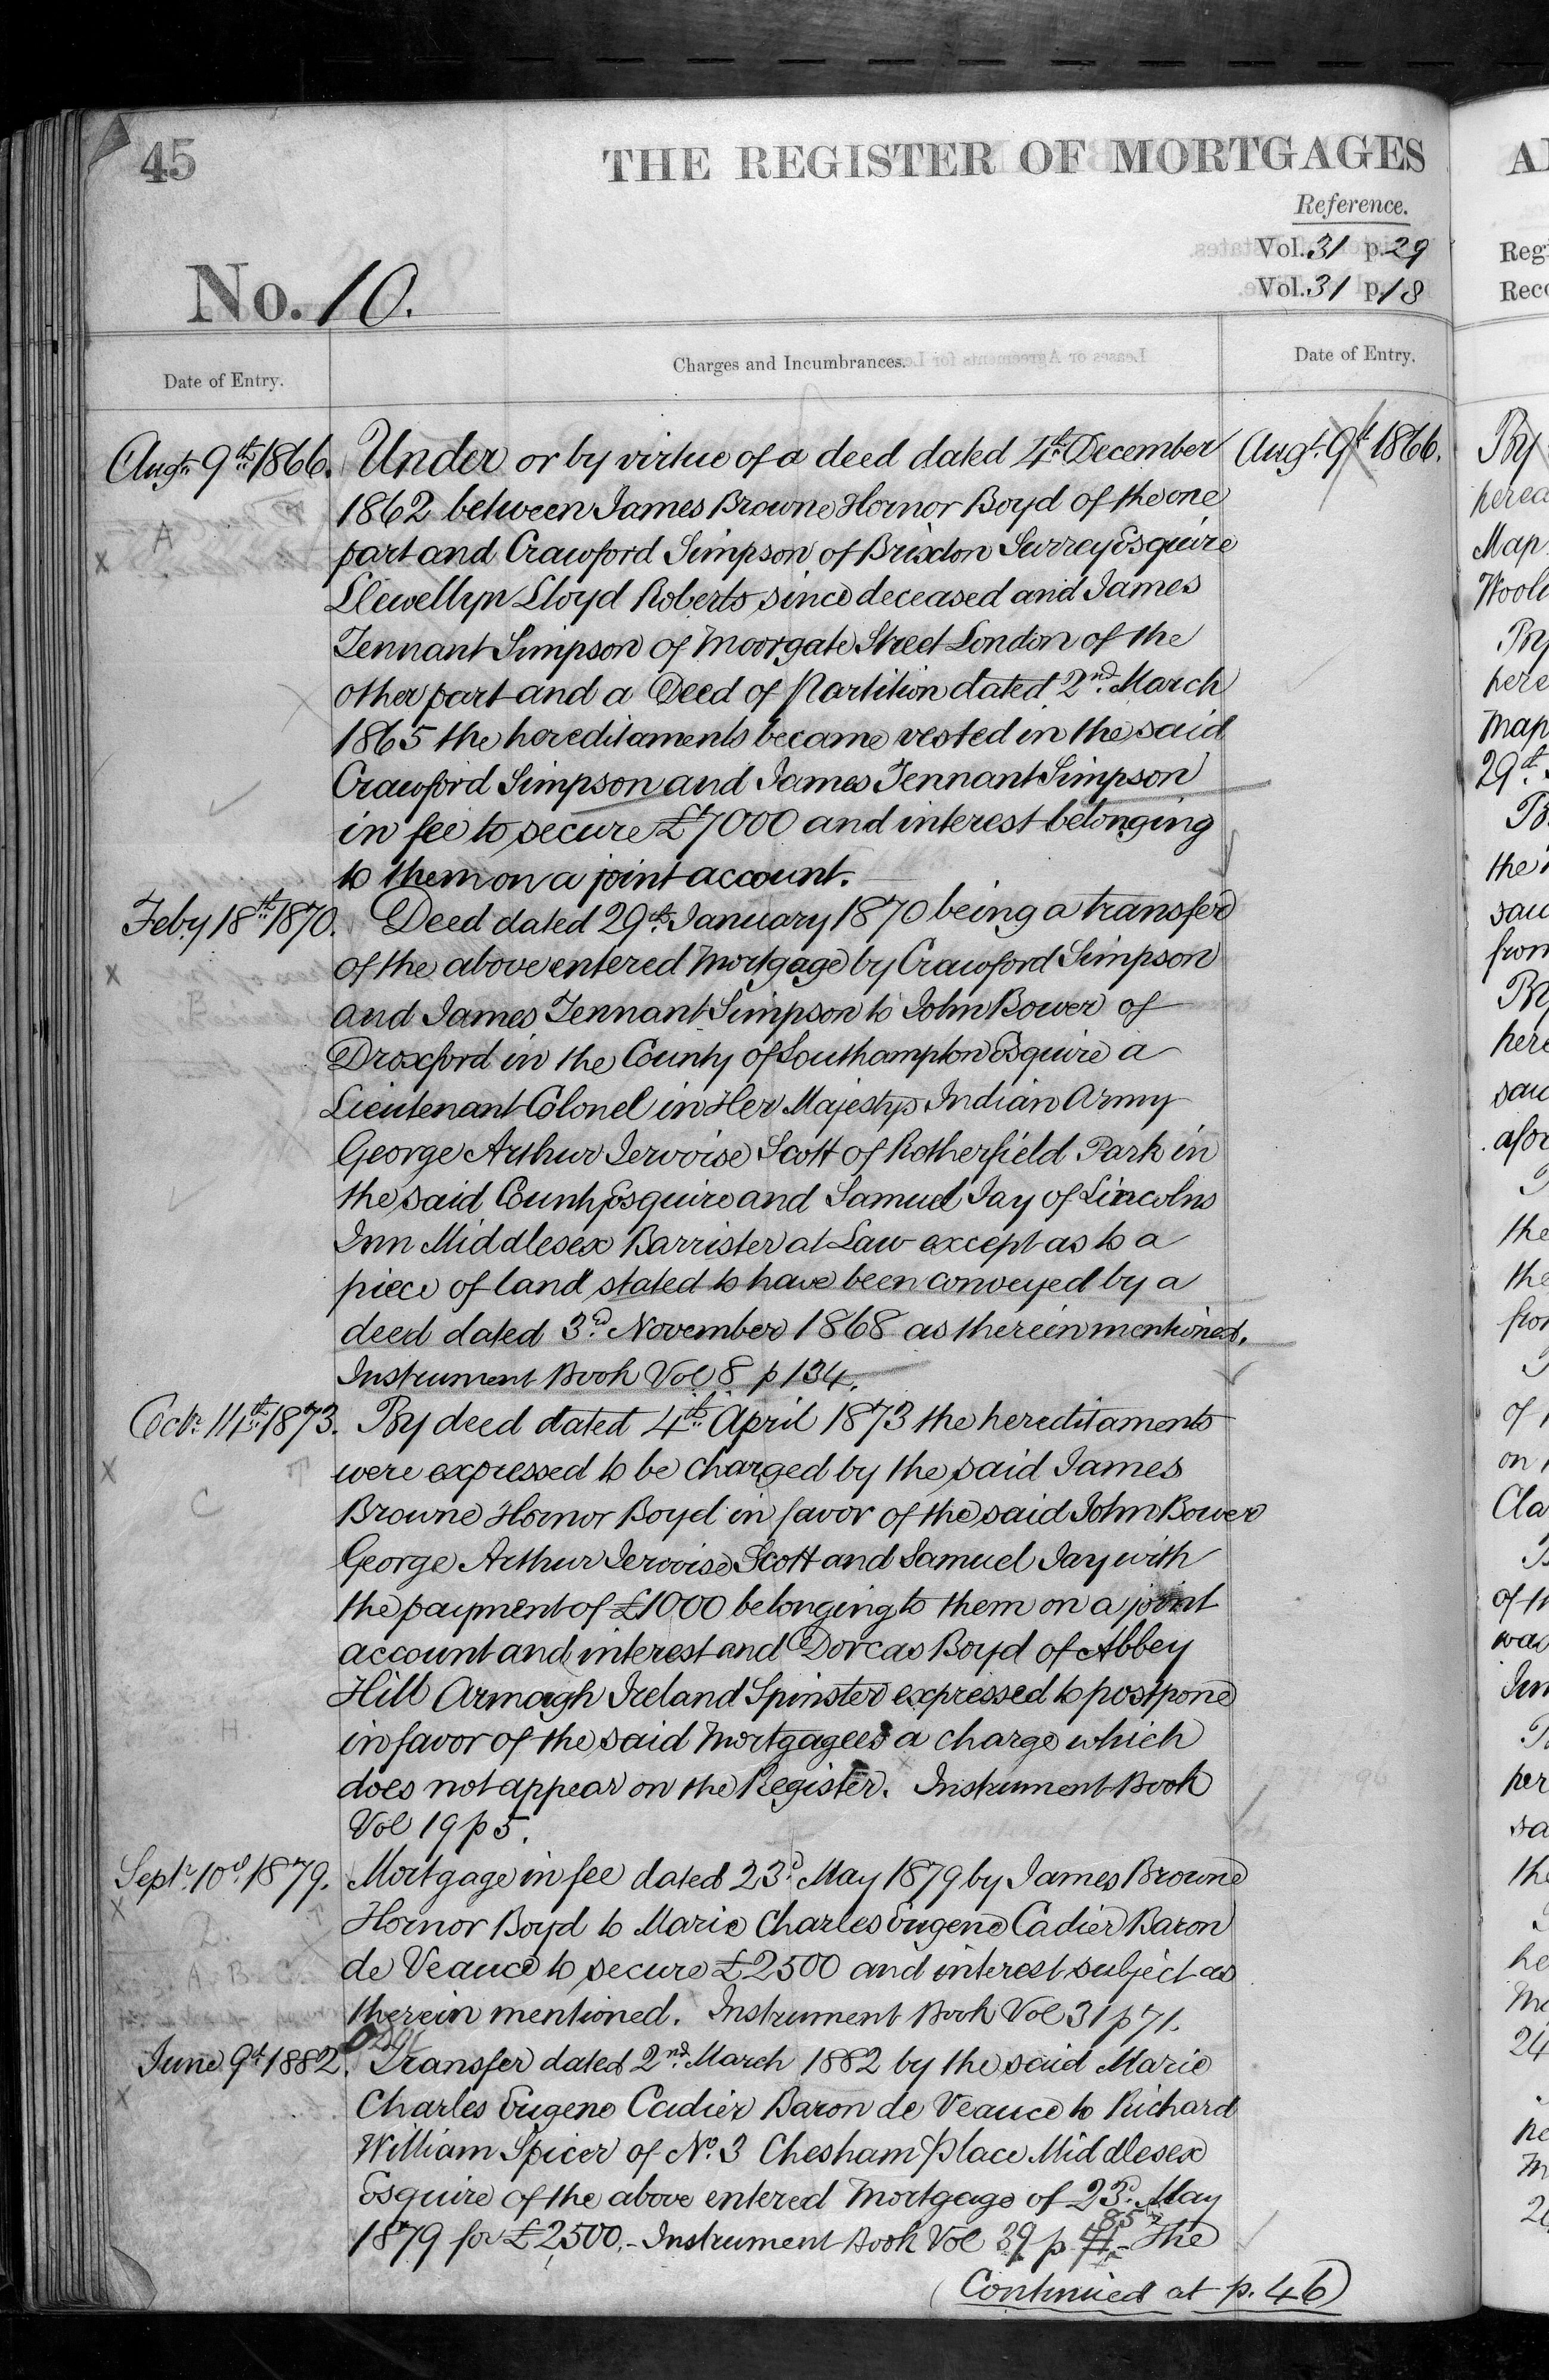 45
THE REGISTER OF MORTGAGES
Reference.
Vol. 31 p. 29
Vol. 31 p. 18
No. 10.
Date of Entry.
Charges and Incumbrances.
Date of Entry.
Augt. 9th. 1866.
Under or by virtue of a deed dated 4th. December
Augt. 9th 1866.
1862 between James Browne Hornor Boyd of the one
A
part and Crawford Simpson of Brixton Surrey Esquire
x
Llewellyn Lloyd Roberts since deceased and James
Tennant Simpson of Moorgate Street London of the
other part and a Deed of Partition dated 2nd. March
1865 the hereditaments became vested in the said
Crawford Simpson and James Tennant Simpson
in fee to secure £7000 and interest belonging
to them on a joint account.
Feby 18th. 1870.
Deed dated 29th. January 1870 being a transfer
x
of the above entered Mortgage by Crawford Simpson
B
and James Tennant Simpson to John Bower of
Droxford in the County of Southampton Esquire a
Lieutenant Colonel in Her Majestys Indian Army
George Arthur Jervoise Scott of Rotherfield Park in
the said County Esquire and Samuel Jay of Lincolns
Inn Middlesex Barrister at Law except as to a
piece of land stated to have been conveyed by a
deed dated 3rd. November 1868 as therein mentioned.
Instrument Book Vol 8 p 134.
Octr. 14th. 1873.
By deed dated 4th. April 1873 the hereditaments
x
were expressed to be charged by the said James
C
Browne Hornor Boyd in favor of the said John Bower
George Arthur Jervoise Scott and Samuel Jay with
the payment of £1000 belonging to them on a joint
account and interest and Dorcas Boyd of Abbey
Hill Armagh Ireland Spinster expressed to postpone
H.
in favor of the said Mortgagees a charge which
does not appear on the Register. Instrument Book
Vol 19 p 5.
Septr. 10th 1879.
Mortgage in fee dated 23d. May 1879 by James Browne
x
Hornor Boyd to Marie Charles Eugene Cadier Baron
de Veauce to secure £2500 and interest subject as
A. B. C.
therein mentioned. Instrument Book Vol 31 p 71.
June 9th 1882.
Transfer dated 2nd. March 1882 by the said Marie
x
Charles Eugene Cadier Baron de Veauce to Richard
William Spicer of No. 3 Chesham Place Middlesex
Esquire of the above entered Mortgage of 23d. May
1879 for £2500.- Instrument Book Vol 39 p 85 The
(Continued at p. 46)